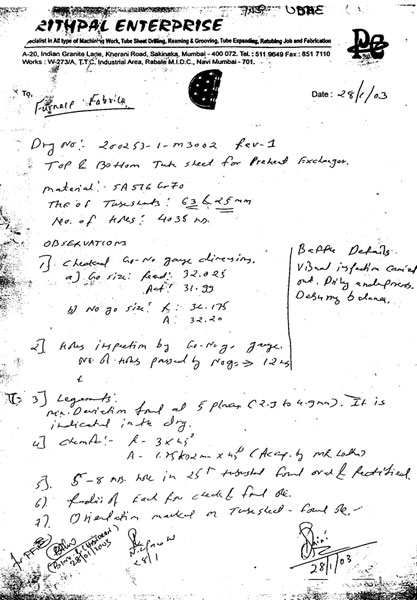 RITHPAL ENTERPRISE
Specialist in All type of Machining Work, Tube Sheet Drilling, Reaming & Grooving, Tube Expanding, Retubing Job and Fabrication
A-20, Indian Granite Lane, Kherani Road, Sakinaka, Mumbai - 400 072. Tel.: 511 9649 Fax : 851 7110
Works : W-273/A, T.T.C. Industrial Area, Rabale M.I.D.C., Navi Mumbai - 701.
To,
Date: 28/1/03
Furnace Fabrica
Drg No: 200253-1-M3002 Rev-1
Top & Bottom Tube sheet for Preheat Exchanger.
Material: SA516 Gr70
Thk of Tubesheets: 63 & 25mm
No. of Holes: 4035 nos.
OBSERVATIONS
1] Checked Go-No gauge dimensions.
a) Go size: Read: 32.025
Act: 31.99
b) No go size: R: 32.175
A: 32.20
Baffle Details
Visual inspection carried
out.
2] Holes inspection by Go-Nogo gauge.
No of Holes passed by Nogo → 12 nos
3] Ligaments:
max. Deviation found at 5 places (2.9 to 4.9mm). It is
indicated in the drg.
4] Chamfer:- R- 3x45°
5] 5-8 nos. hole in 25 tubesheet found oval & Rectified.
6) found ok.
7) Orientation marked on Tubesheet - found ok -
28/01/2003
28/1
28/1/03